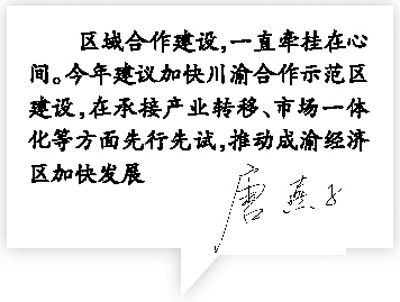 区域合作建设，一直牵挂在心
间。今年建议加快川渝合作示范区
建设，在承接产业转移、市场一体
化等方面先行先试，推动成渝经济
区加快发展
唐燕子